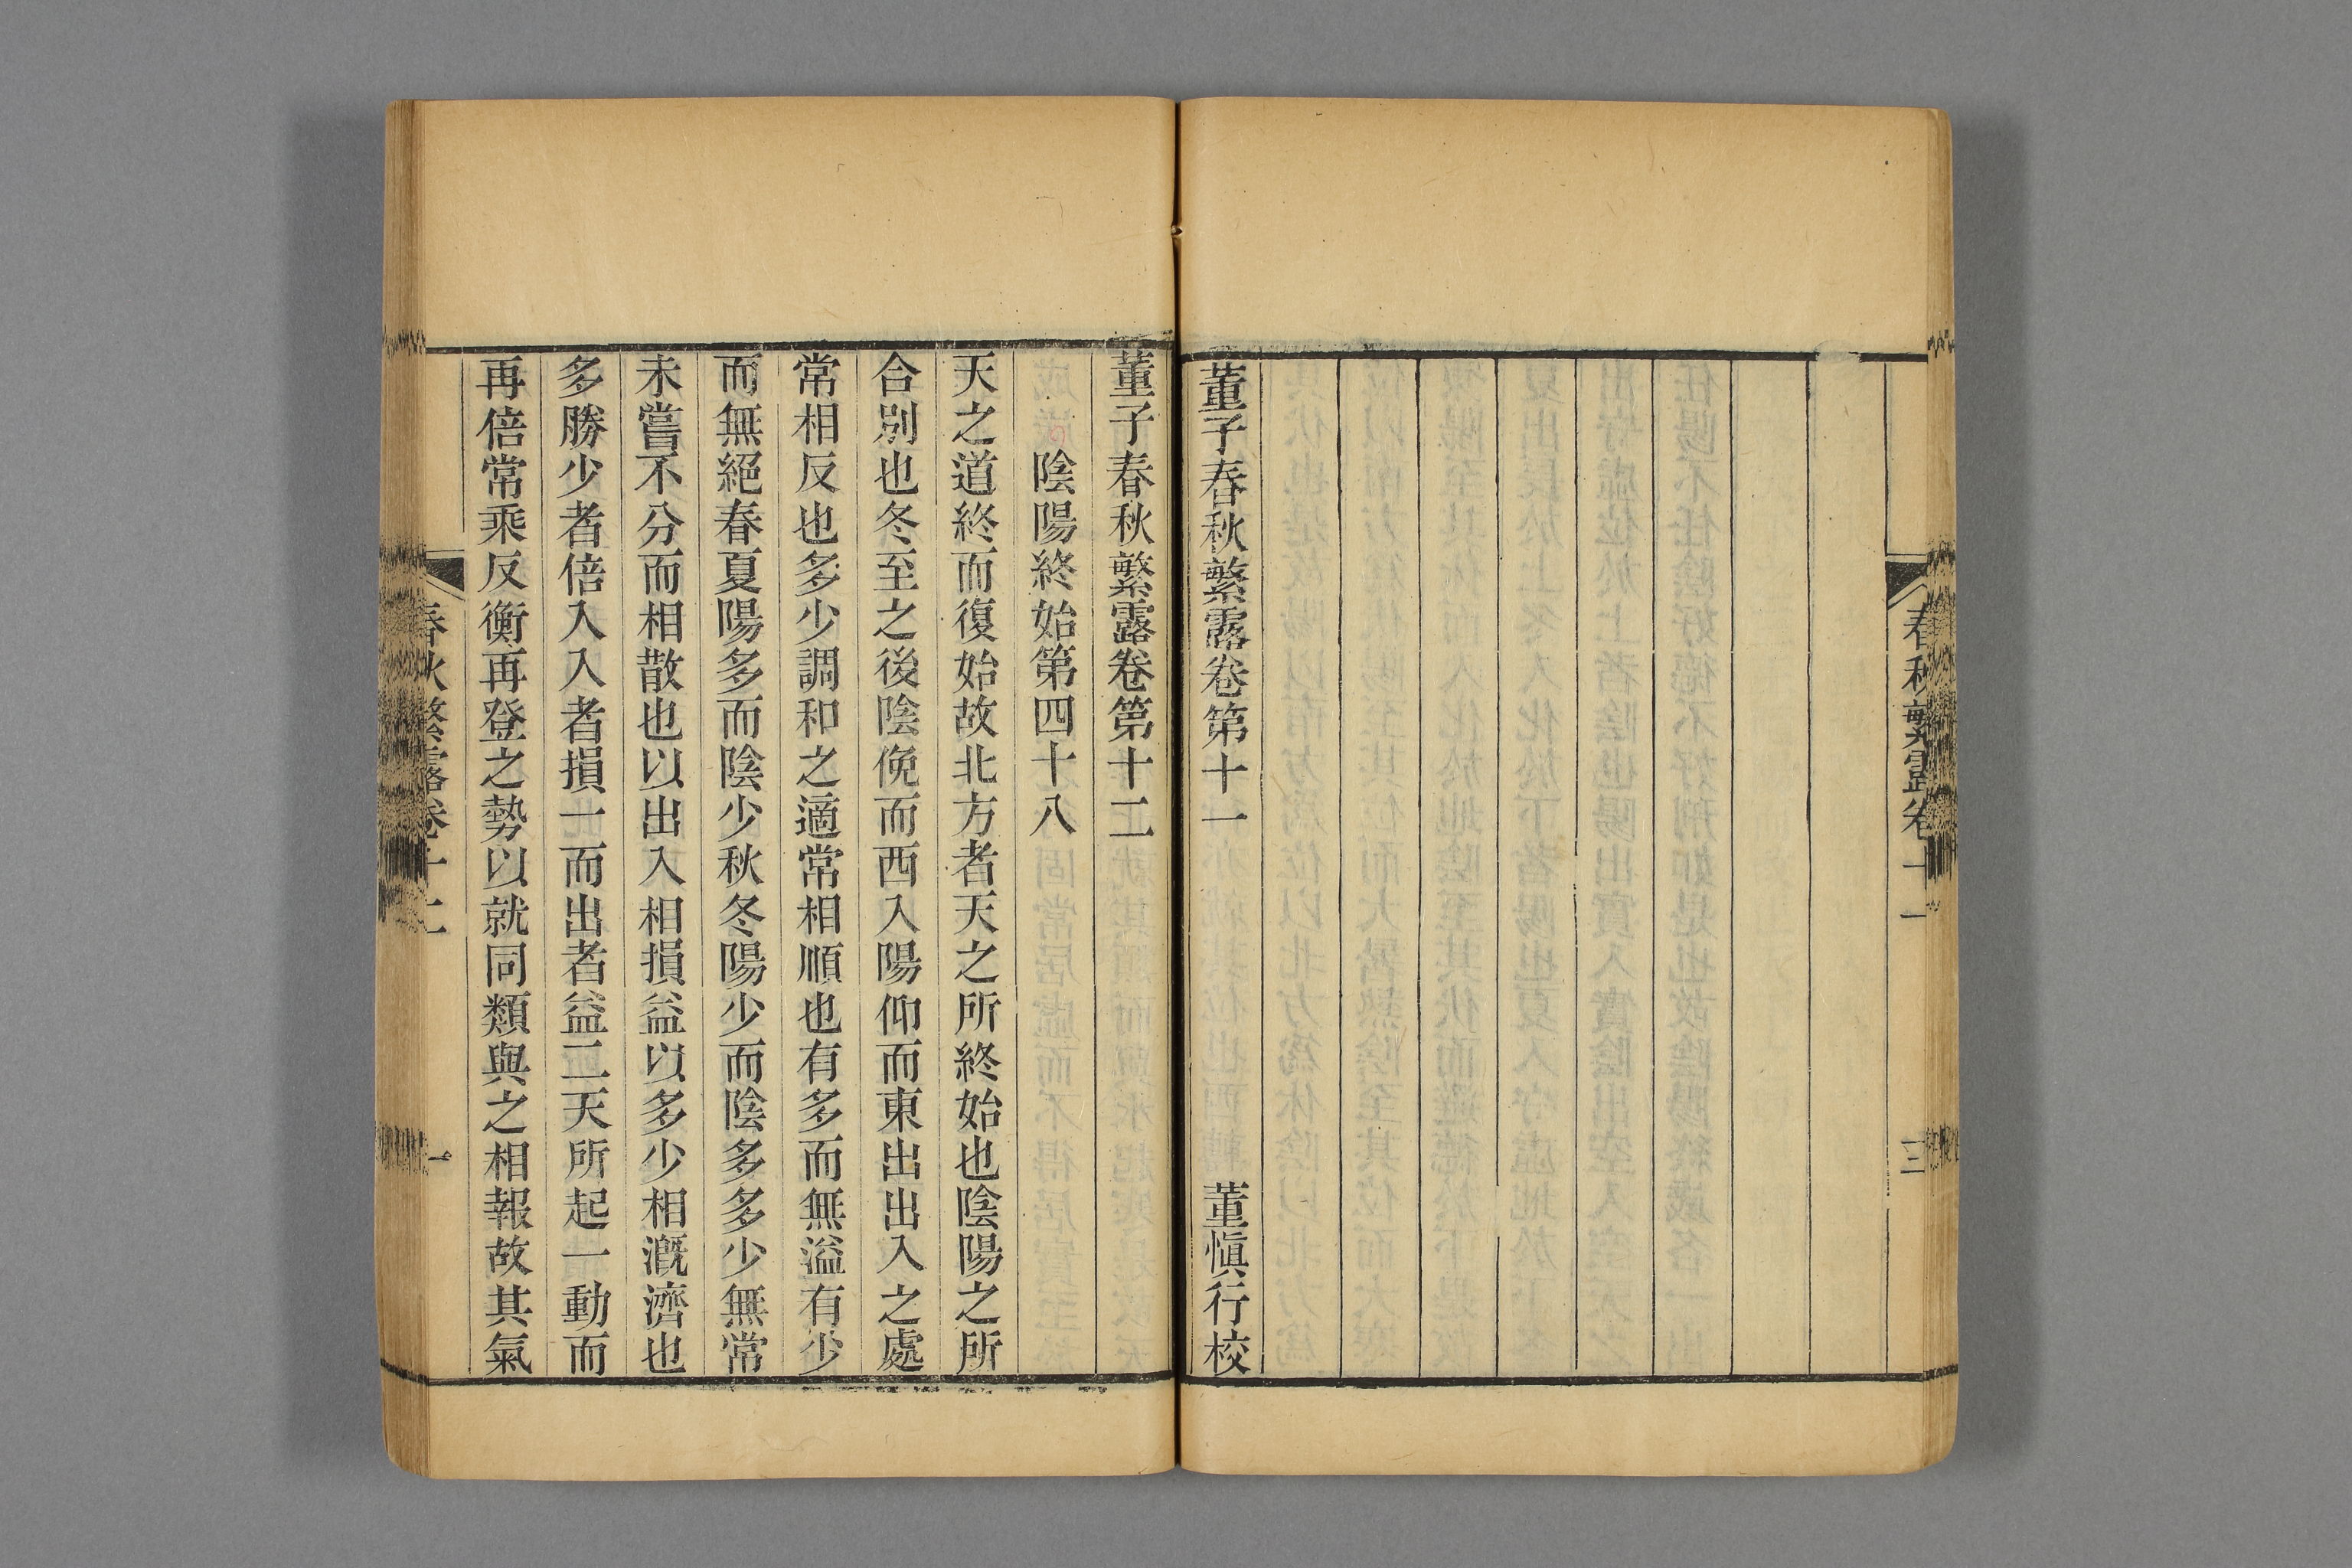 春秋繁露卷十一
三
董子春秋繁露卷第十一
董愼行校
董子春秋繁露卷第十二
陰陽終始第四十八
天之道終而復始故北方者天之所終始也陰陽之所
合別也冬至之後陰俛而西入陽仰而東出出入之處
常相反也多少調和之適常相順也有多而無溢有少
而無絕春夏陽多而陰少秋冬陽少而陰多多少無常
未嘗不分而相散也以出入相損益以多少相漑濟也
多勝少者倍入入者損一而出者益二天所起一動而
再倍常乘反衡再登之勢以就同類與之相報故其氣
春秋繁露卷十二
一